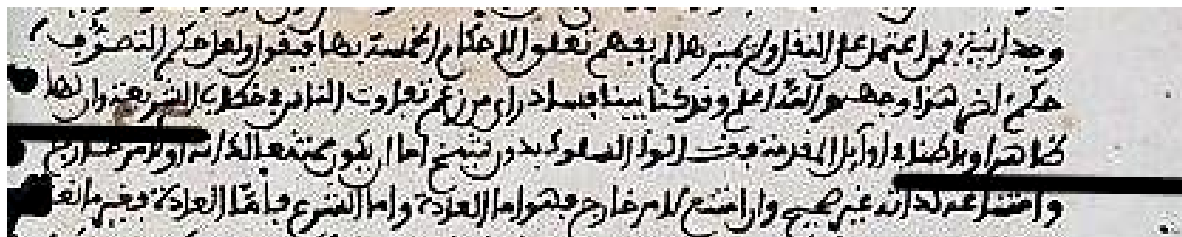 وجدانية فمن اعتمد على النقل ولم يميزها لم يفهم تعلق الاحكام الخمسة بها فيقول ولعل حكم التصوف
حكم اخر هذا وجهه والله اعلم وقد كنا بينا فساد راي من زعم تفاوت الناس في حكم الشريعة وان لها
ظاهرا وباطنا اوايل المقدمة فقلت لولا السلوك بدون شيخ اما ان يكون ممتنعا لذاته او لامر خارج
وامتناعه لذاته غير صحيح وان امتنع لامر خارج فهو اما العادة واما الشرع فاما العادة فغير مانعـ